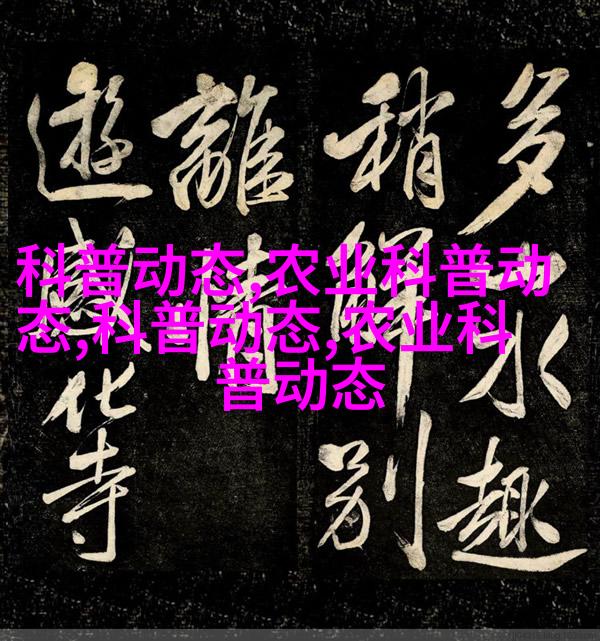 多水趣
稍解別
離情
遊感化寺
科普动态,农业科普动
态,科普动态,农业科
普动态